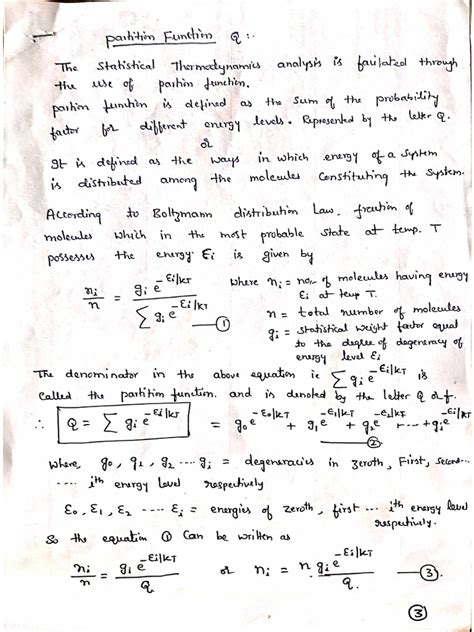 partition Function Q :-
The Statistical Thermodynamics analysis is failated through
the use of partion function.
partion function is defined as the sum of the probability
factor for different energy levels. Represented by the letter Q.
or
It is defined as the ways in which energy of a system
is distributed among the molecules Constituting the System.
According to Boltzmann distribution Law, fraction of
molecules which in the most probable state at temp. T
possesses the energy Ei is given by
ni/n = gi e^-Ei/kT / Σ gi e^-Ei/kT —①
Where ni = no. of molecules having energy
Ei at temp T.
n = total number of molecules
gi = statistical weight factor equal
to the degree of degeneracy of
energy level Ei
The denominator in the above equation ie Σ gi e^-Ei/kT is
Called the partition function. and is denoted by the letter Q or f.
∴ Q = Σ gi e^-Ei/kT = g0 e^-E0/kT + g1 e^-E1/kT + g2 e^-E2/kT ---- + gi e^-Ei/kT —②
Where, g0, g1, g2 .... gi = degeneracies in zeroth, First, second...
.... ith energy level respectively
E0, E1, E2 ---- Ei = energies of zeroth, first ... ith energy level
respectively.
So the equation ① Can be written as
ni/n = gi e^-Ei/kT / Q or ni = n gi e^-Ei/kT / Q. —③.
③